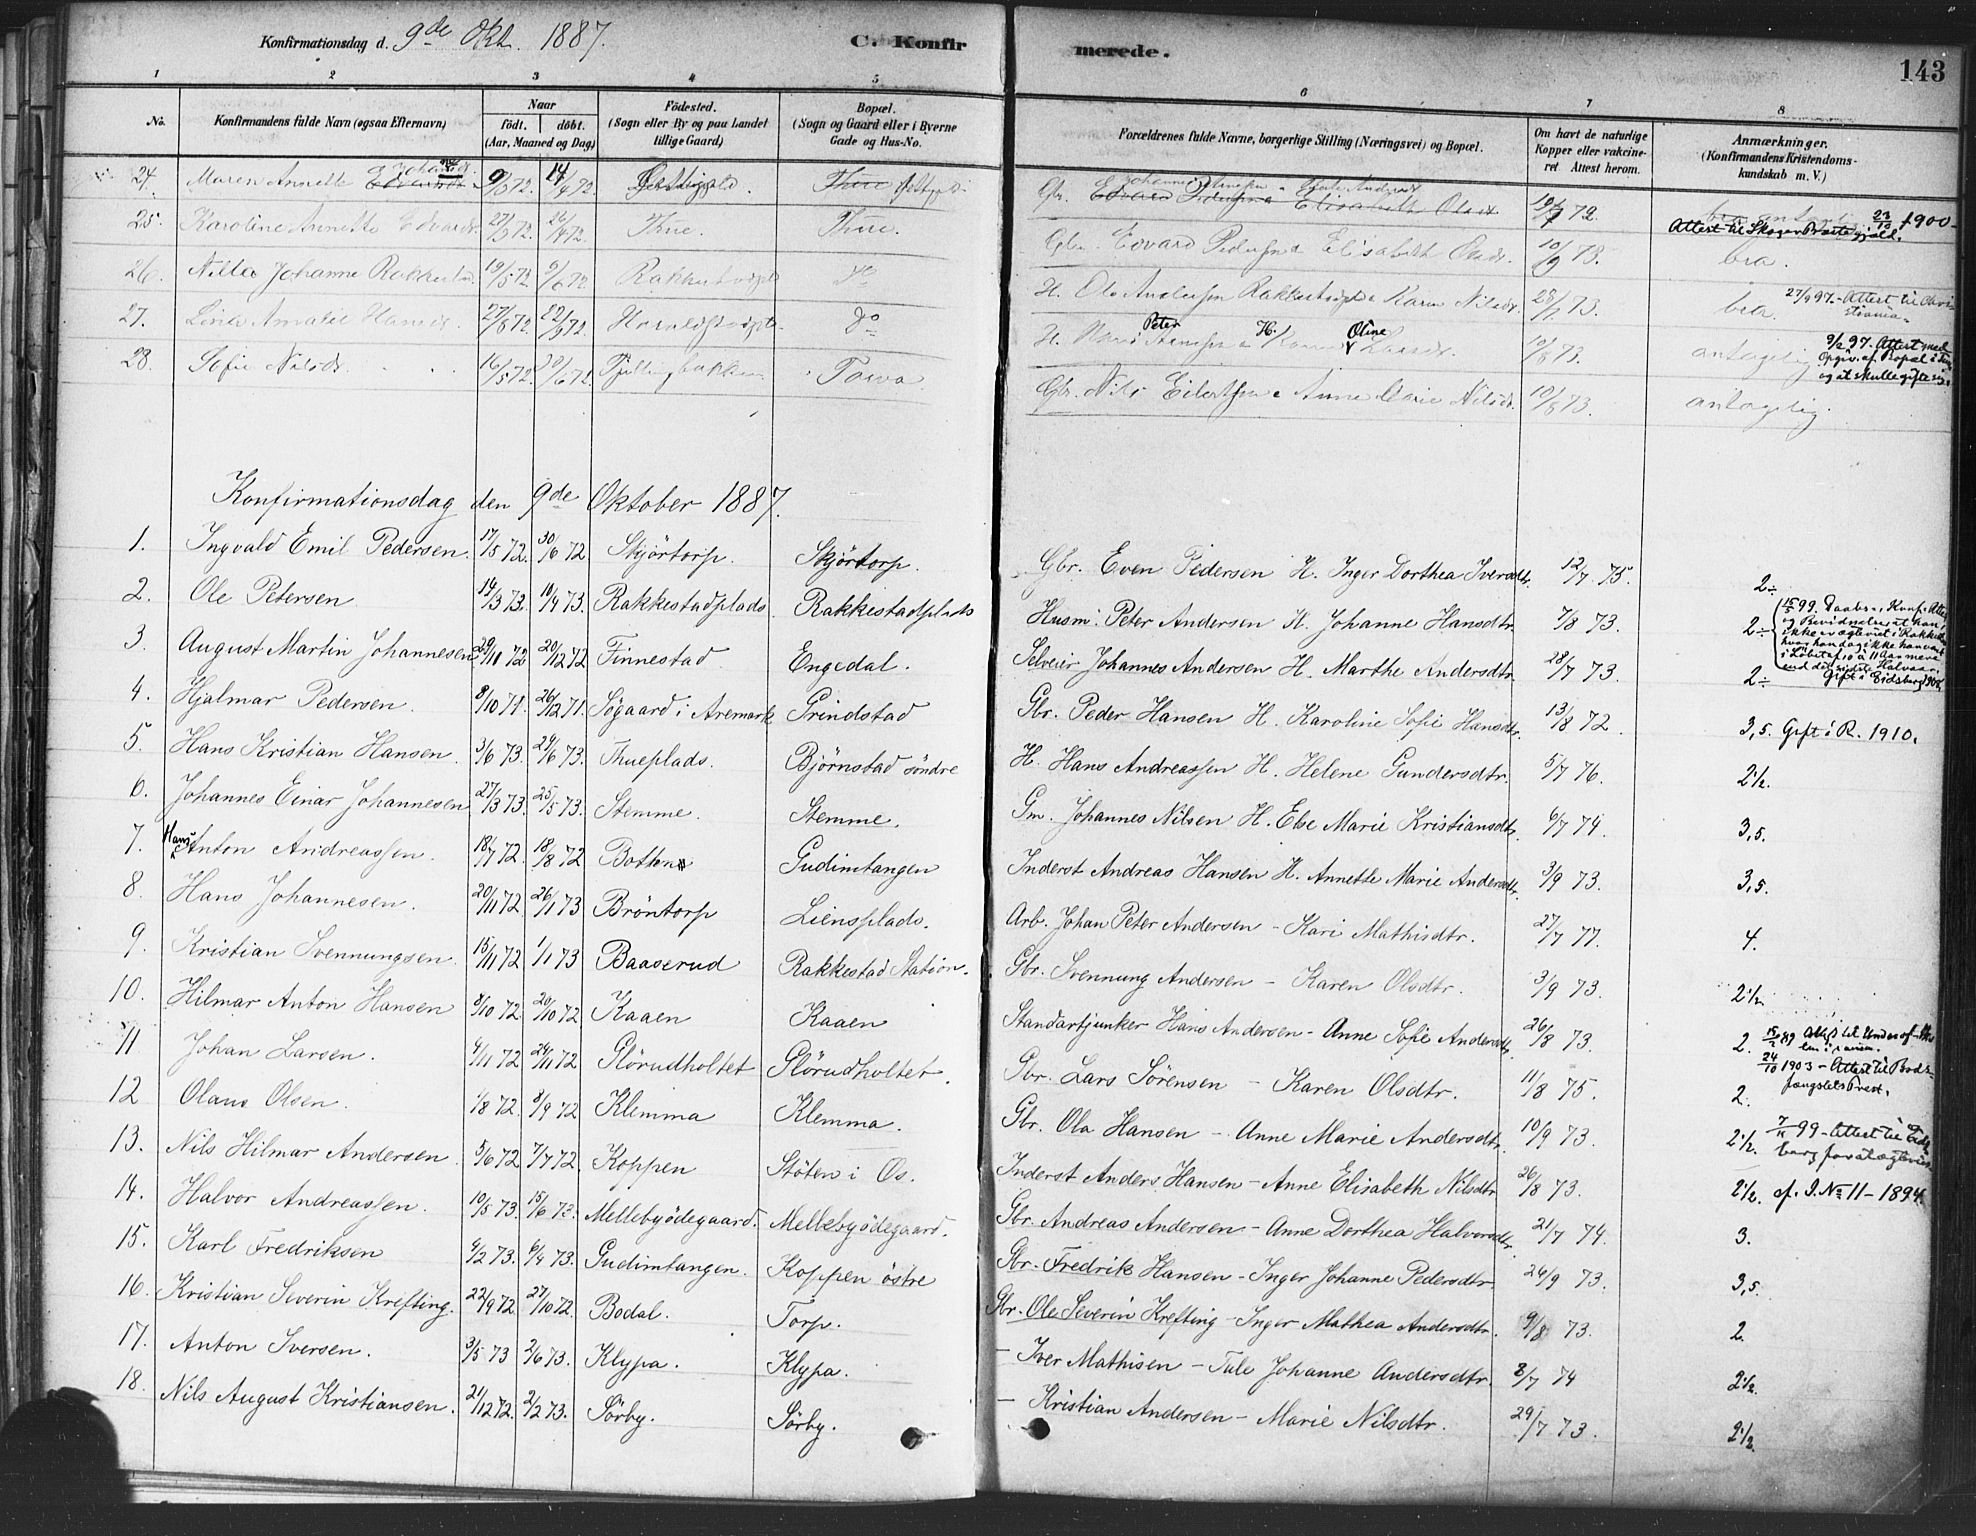 Konfirmationsdag d. 9de Okt. 1887. C. Konfirmerede. 143
1 2 3 4 5 6 7 8
No. Konfirmandens fulde Navn (ogsaa Efternavn) Naar födt. döbt. (Aar, Maaned og Dag) Födested. (Sogn eller By og paa Landet tillige Gaard) Bopæl. (Sogn og Gaard eller i Byerne Gade og Hus-No. Forældrenes fulde Navne, borgerlige Stilling (Næringsvei) og Bopæl. Om havt de naturlige Kopper eller vakcineret Attest herom. Anmærkninger. (Konfirmandens Kristendomskundskab m. V.)
24. Maren Annette 9/3 72. 14/4 72. Thue 10/7 72. 23/10 1900
25. Karoline Annette Edvardsdt. 27/3 72. 26/4 72. Thue. Thue. Gbr. Edvard Pedersen & Elisabeth Olsdt. 10/9 73. bra.
26. Johanne Rakkestad. 19/5 72. 9/6 72. Rakkestadplds Do H. Ole Andersen Rakkestadplds & Karen Nilsdt. 28/7 73. bra. 27/9 97. Attest til
27. Amalie Hansdt. 27/8 72. 22/9 72. Do H. Hans Peter & H. Karen Oline Larsdt. 10/8 73. antagelig 9/2 97. Attest med
28. Sofie Nilsdt. 16/5 72. 30/6 72. Torva Gbr. Nils Eilertsen & Anne Marie Nilsdt. 10/8 73. antagelig.
Konfirmationsdag den 9de Oktober 1887.
1. Ingvald Emil Pedersen. 17/5 72. 30/6 72. Skjörtorp. Skjörtorp. Gbr. Even Pedersen H. Inger Dorthea Iversdtr. 12/7 75. 2÷
2. Ole Petersen 14/3 73. 14/4 73. Rakkestadplads. Rakkestadplads Husm: Peter Andersen H. Johanne Hansdtr. 7/8 73. 2÷ 15/5 99. Daabs-, Konf. Attest
3. August Martin Johannesen 29/10 72 20/12 72 Finnestad. Engedal. Selveier Johannes Andersen H. Marthe Andersdtr. 28/7 73. 2÷ Gift i Eidsberg 1908
4. Hjalmar Pedersen. 8/10 71. 26/12 71. Søgaard i Aremark Grindstad Gbr. Peder Hansen H. Karoline Sofie Hansdtr. 13/8 72. 3,5. Gift i R. 1910.
5. Hans Kristian Hansen. 3/6 73. 29/6 73. Thueplads. Bjørnstad söndre H. Hans Andreassen H. Helene Gundersdtr. 5/7 76. 2½.
6. Johannes Einar Johannesen 27/3 73. 25/5 73. Stemme. Stemme. Gm. Johannes Nilsen H. Else Marie Kristiansdtr. 6/7 74. 3,5.
7. Hans Anton Andreassen. 18/7 72. 18/8 72 Botten Gudimtangen Inderst Andreas Hansen H. Annette Marie Andersdtr. 3/9 73. 3,5.
8. Hans Johannesen. 20/11 72. 26/1 73 Bröntorp Liensplads. Arb. Johan Peter Andersen - Kari Mathisdtr. 27/7 77. 4.
9. Kristian Svennungsen. 15/11 72 1/1 73 Baaserud Rakkestad Station. Gbr. Svennung Andersen - Karen Olsdtr. 3/9 73. 2½
10. Hilmar Anton Hansen 8/10 72. 20/10 72 Kaaen Kaaen Standartjunker Hans Andersen - Anne Sofie Andersdtr. 26/8 73. 2.
11 Johan Larsen. 4/11 72 24/11 72 Glörudholtet Glörudholtet. Gbr. Lars Sörensen - Karen Olsdtr. 11/8 75. 2. 24/10 1903 - Attest til Bodsfængslets Prest.
12 Olaus Olsen. 1/8 72. 8/9 72 Klemma Klemma. Gbr. Ola Hansen - Anne Marie Andersdtr. 10/9 73. 2½. 7/11 99 - Attest til
13. Nils Hilmar Andersen 5/6 72 7/7 72. Koppen Støten i Os. Inderst Anders Hansen - Anne Elisabeth Nilsdtr. 26/8 73. 2½. cf. J. No 11 - 1894.
14. Halvor Andreassen. 10/5 73. 15/6 73. Mellebyödegaard. Mellebyödegaard. Gbr. Andreas Andersen - Anne Dorthea Halvorsdtr. 21/7 74. 3.
15. Karl Fredriksen 9/2 73. 6/4 73. Gudimtangen. Koppen östre Gbr. Fredrik Hansen - Inger Johanne Pedersdtr. 24/9 73. 3,5.
16. Kristian Severin Krefting. 22/9 72. 27/10 72. Bodal. Torp. Gbr. Ole Severin Krefting - Inger Mathea Andersdtr. 9/8 73. 2
17. Anton Iversen. 3/5 73 2/6 73. Klypa. Klypa. - Iver Mathisen - Tale Johanne Andersdtr. 8/7 74 2½.
18. Nils August Kristiansen. 21/12 72. 2/2 73. Sörby. Sörby. - Kristian Andersen - Marie Nilsdtr. 29/7 73. 2½.